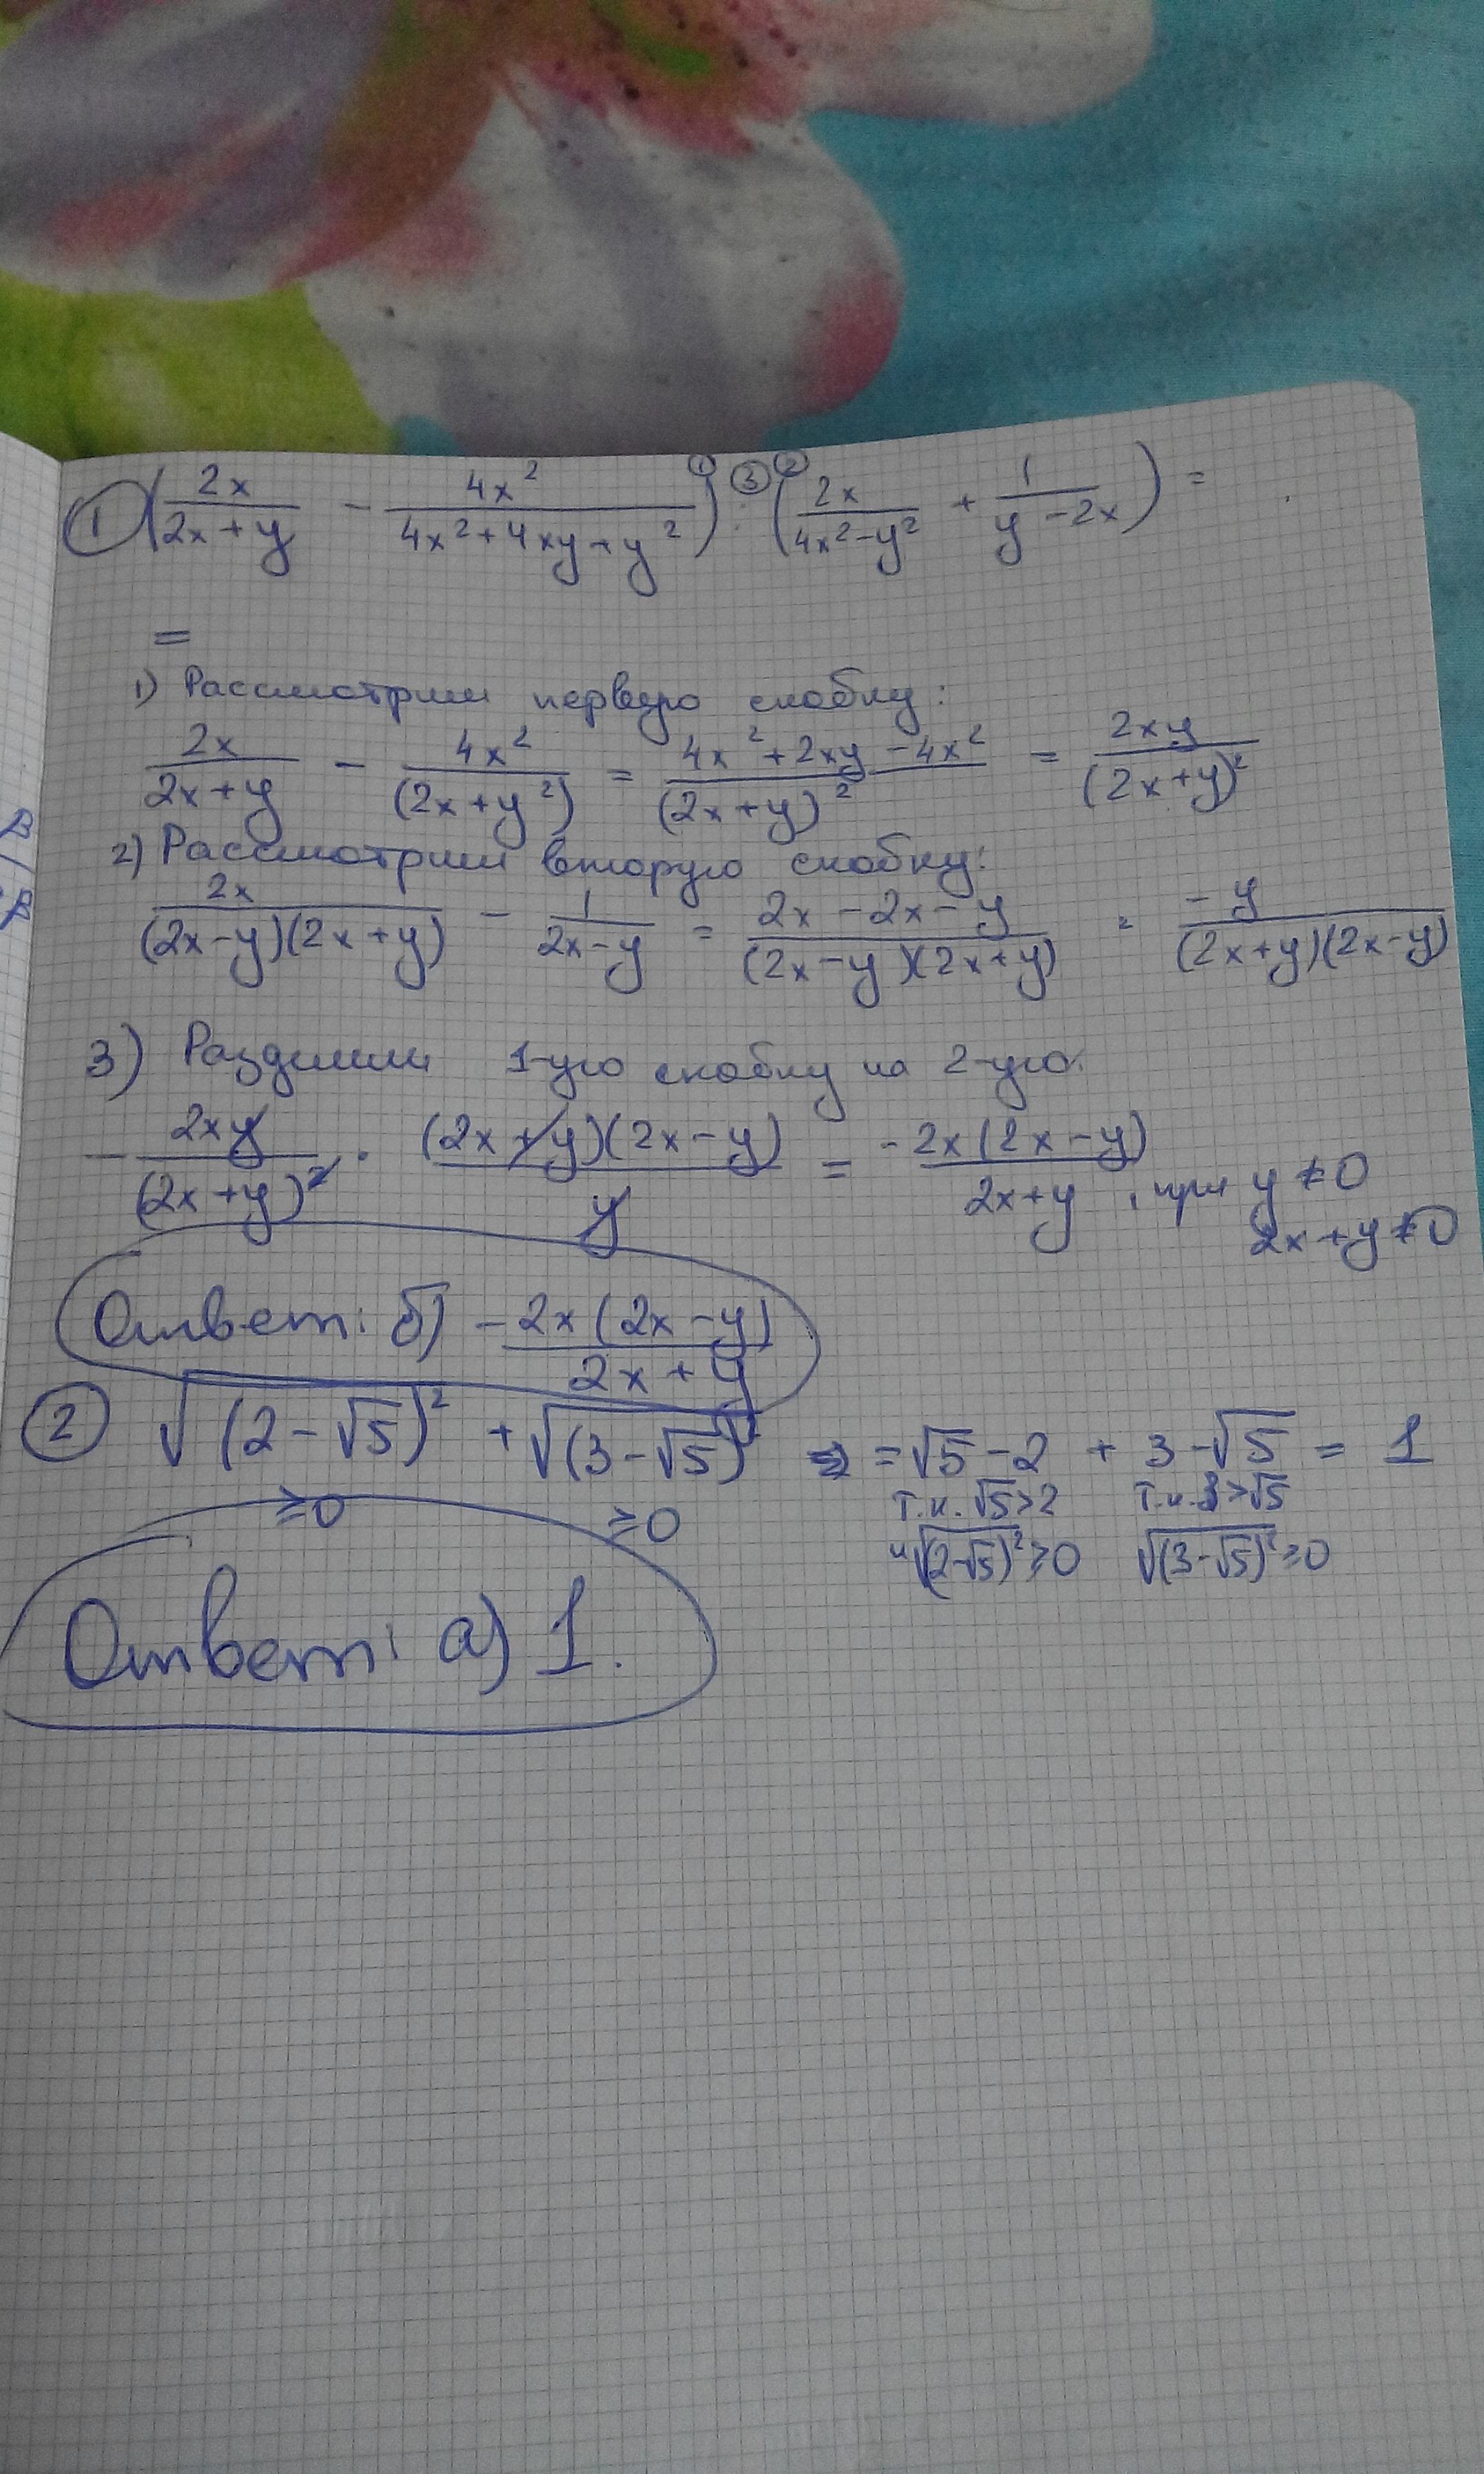 ① (2x/(2x+y) - 4x²/(4x²+4xy+y²)) ① : ③ (② 2x/(4x²-y²) + 1/(y-2x)) =
=
1) Рассмотрим первую скобку:
2x/(2x+y) - 4x²/(2x+y²) = (4x²+2xy-4x²)/(2x+y)² = 2xy/(2x+y)²
2) Рассмотрим вторую скобку:
2x/((2x-y)(2x+y)) - 1/(2x-y) = (2x-2x-y)/((2x-y)(2x+y)) = -y/((2x+y)(2x-y))
3) Разделим 1-ую скобку на 2-ую:
- 2xy/(2x+y)² · (2x+y)(2x-y)/y = -2x(2x-y)/(2x+y), при y≠0
2x+y≠0
Ответ: б) -2x(2x-y)/(2x+y)
② √(2-√5)² + √(3-√5)² = √5-2 + 3-√5 = 1
≥0 ≥0 т.к. √5>2 т.к. 3>√5
и √(2-√5)²≥0 √(3-√5)²≥0
Ответ: а) 1.